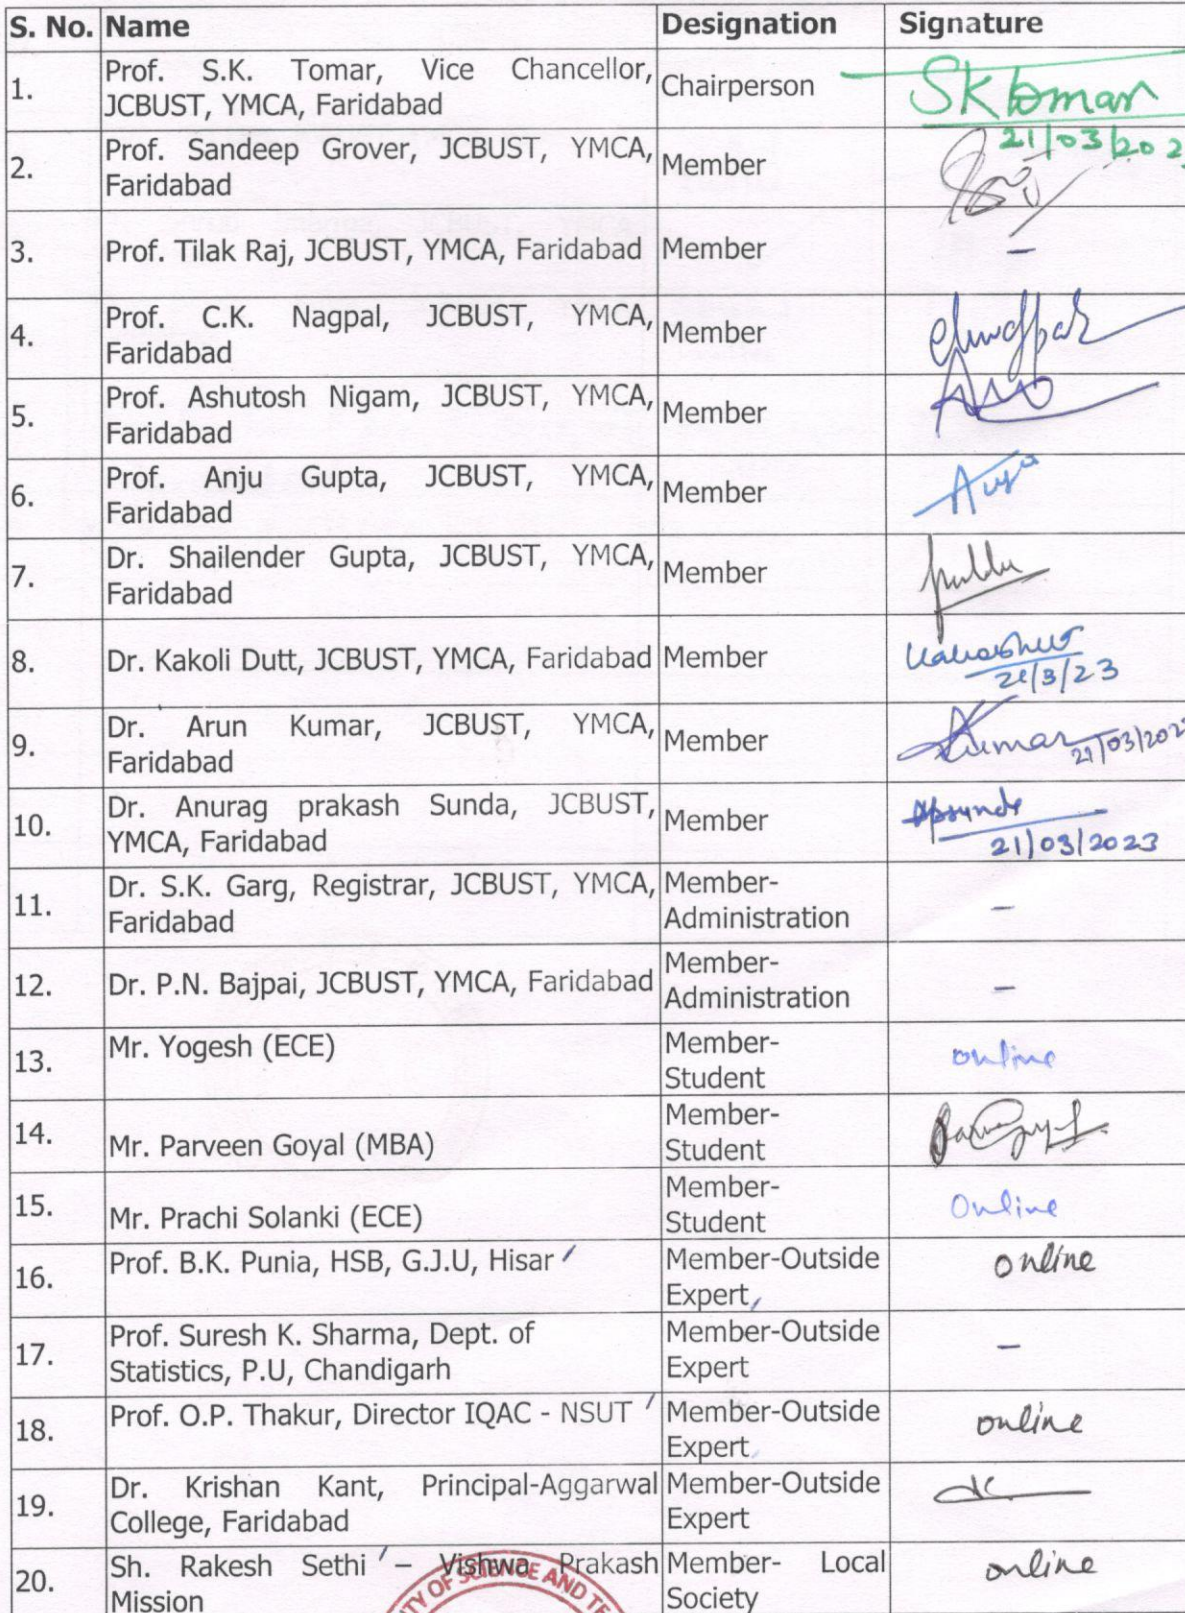 S. No. Name Designation Signature
1. Prof. S.K. Tomar, Vice Chancellor, JCBUST, YMCA, Faridabad Chairperson SKTomar 21/03/202
2. Prof. Sandeep Grover, JCBUST, YMCA, Faridabad Member
3. Prof. Tilak Raj, JCBUST, YMCA, Faridabad Member –
4. Prof. C.K. Nagpal, JCBUST, YMCA, Faridabad Member
5. Prof. Ashutosh Nigam, JCBUST, YMCA, Faridabad Member
6. Prof. Anju Gupta, JCBUST, YMCA, Faridabad Member
7. Dr. Shailender Gupta, JCBUST, YMCA, Faridabad Member
8. Dr. Kakoli Dutt, JCBUST, YMCA, Faridabad Member 21/3/23
9. Dr. Arun Kumar, JCBUST, YMCA, Faridabad Member AKumar 21/03/202
10. Dr. Anurag prakash Sunda, JCBUST, YMCA, Faridabad Member apsunda 21/03/2023
11. Dr. S.K. Garg, Registrar, JCBUST, YMCA, Faridabad Member-Administration –
12. Dr. P.N. Bajpai, JCBUST, YMCA, Faridabad Member-Administration –
13. Mr. Yogesh (ECE) Member-Student online
14. Mr. Parveen Goyal (MBA) Member-Student
15. Mr. Prachi Solanki (ECE) Member-Student Online
16. Prof. B.K. Punia, HSB, G.J.U, Hisar Member-Outside Expert online
17. Prof. Suresh K. Sharma, Dept. of Statistics, P.U, Chandigarh Member-Outside Expert –
18. Prof. O.P. Thakur, Director IQAC - NSUT Member-Outside Expert online
19. Dr. Krishan Kant, Principal-Aggarwal College, Faridabad Member-Outside Expert
20. Sh. Rakesh Sethi – Vishwa Prakash Mission Member- Local Society online
OF SCIENCE AND